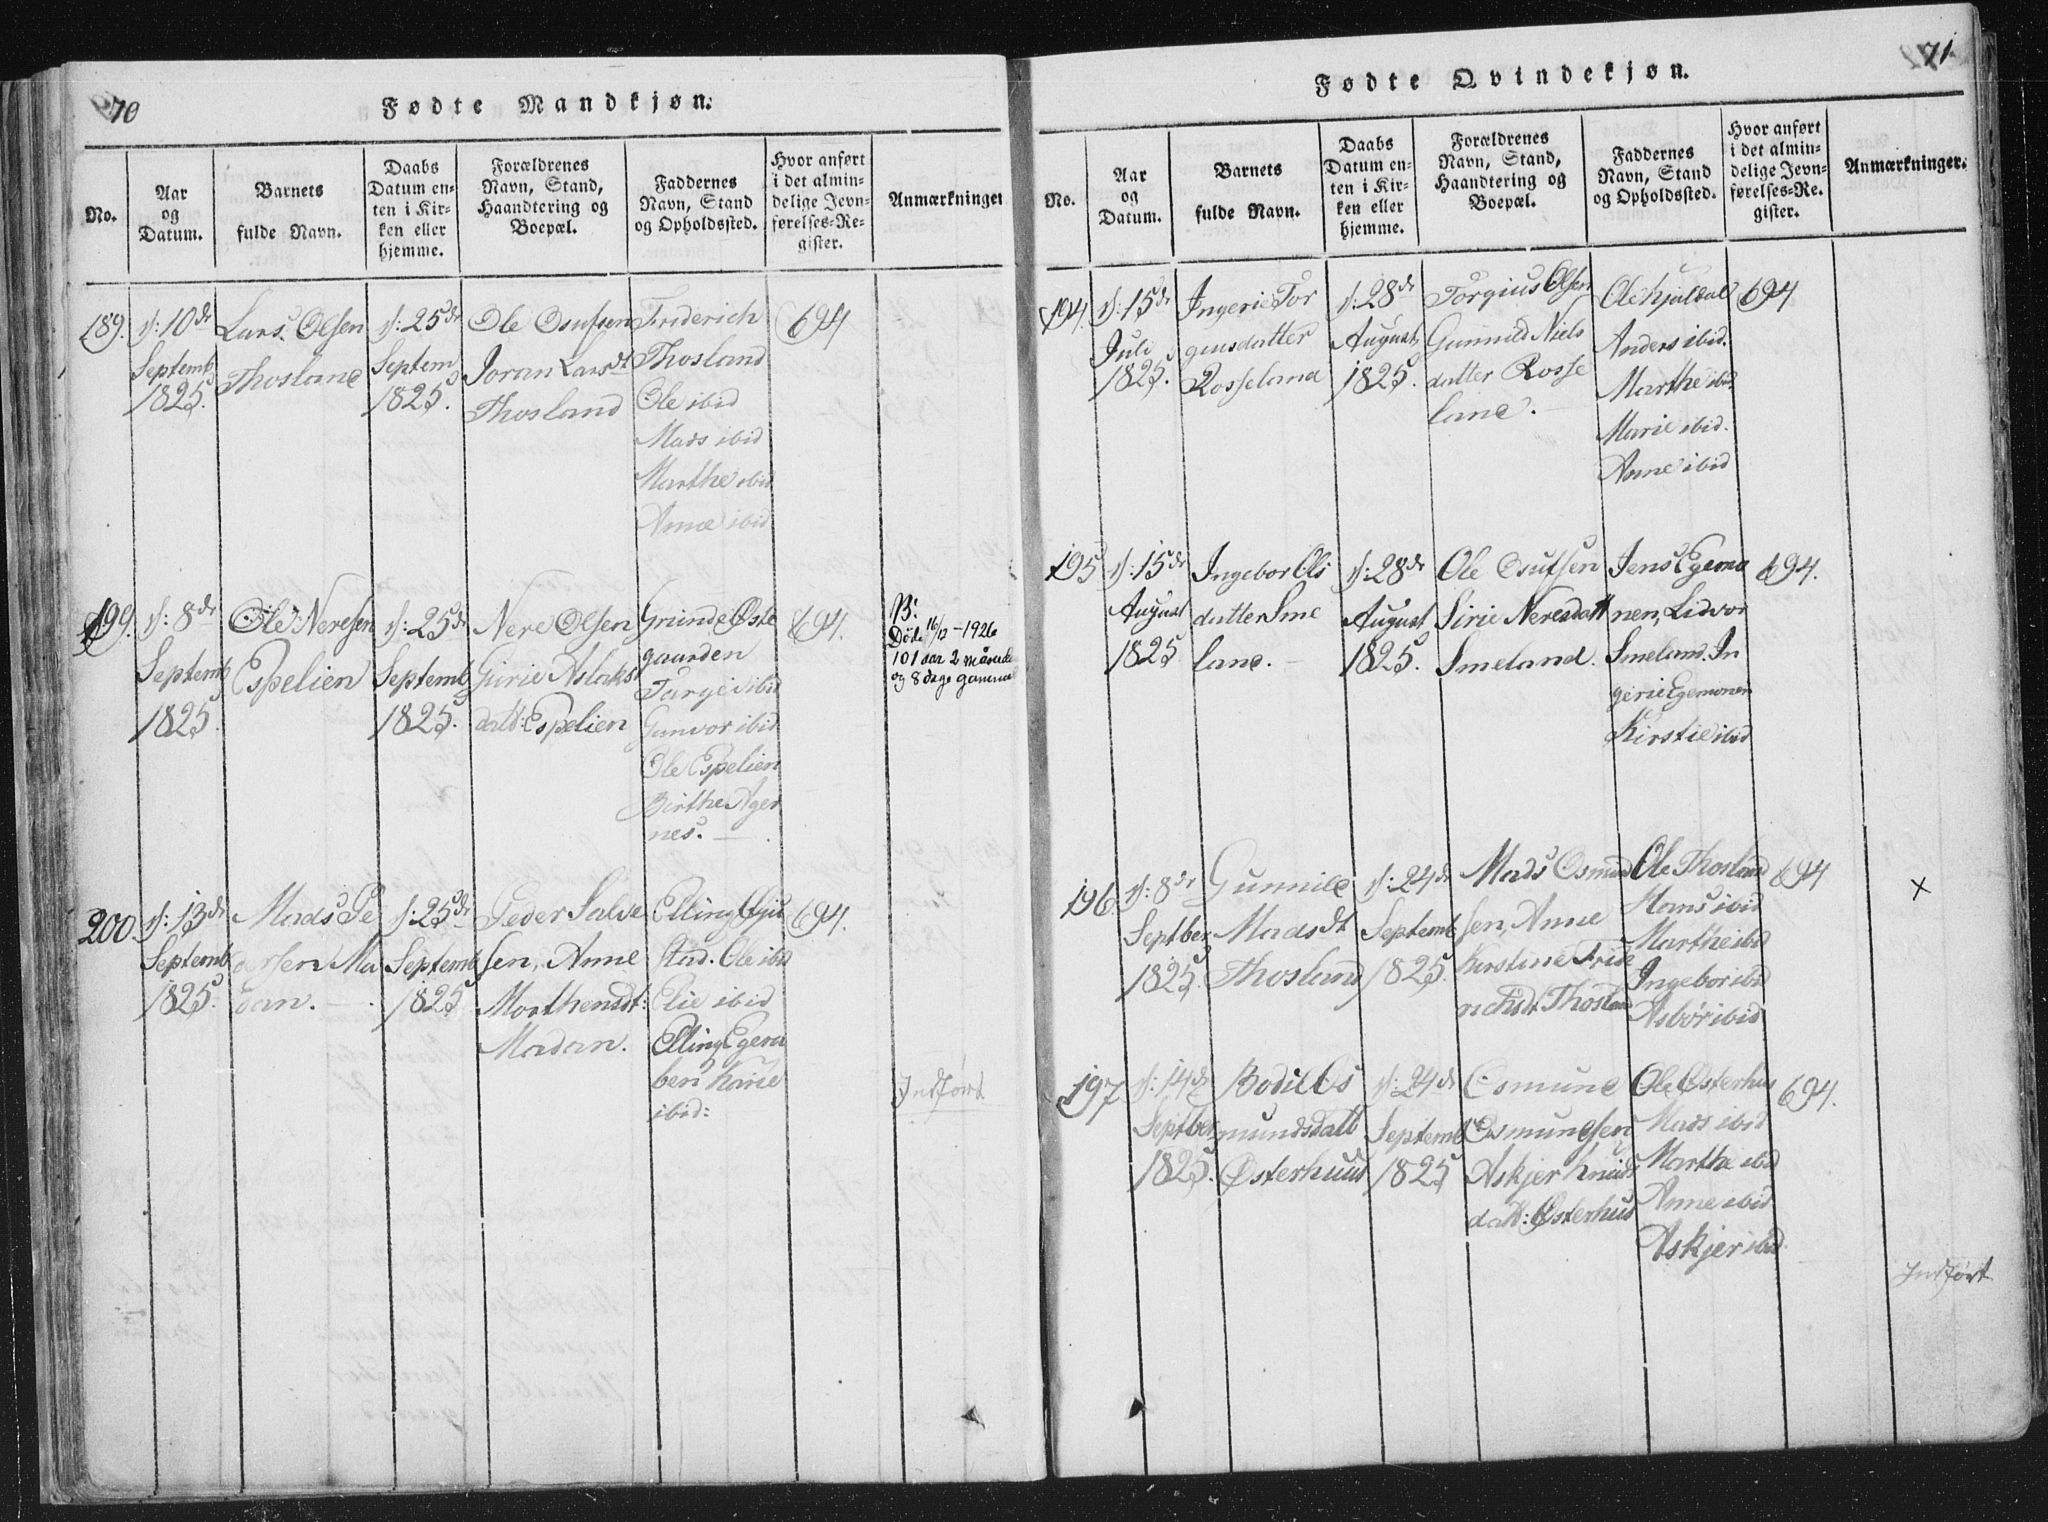 70
Fødte Mandkjøn.
No.
Aar
og
Datum.
Barnets
fulde Navn.
Daabs
Datum en-
ten i Kir-
ken eller
hjemme.
Forældrenes
Navn, Stand,
Haandtering og
Boepæl.
Faddernes
Navn, Stand
og Opholdssted.
Hvor anført
i det almin-
delige Jevn-
førelses-Re-
gister.
Anmærkninger
189.
d: 10de
Septemb
1825.
Lars Olsen
Thosland
d: 25de
Septem
1825.
Ole Osufsen
Joran Larsdt
Thosland
Friderich
Thosland
Ole ibid
Mads ibid
Marthe ibid
Anne ibid
694
199.
d: 8de
Septemb
1825.
Ole Neresen
Espelien
d: 25de
Septemb
1825.
Nere Olsen
Gurie Aslaks
datt: Espelien
Grunde Øste
gaarden
Targie ibid
Gunvor ibid
Ole Espelien
Birthe Ager
nes.
694.
B:
Døde 16/12-1926
101 aar 2 måneder
og 8 dage gammel
200.
d: 13de
Septemb
1825.
Mads Pe
dersen Ma
dan.
d: 25de
Septemb
1825
Peder Salve
sen, Anne
Morthensdt:
Madan.
Elling
stad. Ole ibid
Elie ibid
Elling Egera
ben Karie
ibid:
694.
Indført
71.
Fødte Qvindekjøn.
No.
Aar
og
Datum.
Barnets
fulde Navn.
Daabs
Datum en-
ten i Kir-
ken eller
hjemme.
Forældrenes
Navn, Stand,
Haandtering og
Boepæl.
Faddernes
Navn, Stand
og Opholdssted.
Hvor anført
i det almin-
delige Jevn-
førelses-Re-
gister.
Anmærkninger.
194.
d: 15de
Juli
1825.
Ingerie Tor
giusdatter
Rosseland
d: 28de
August
1825.
Torgius Olsen
Gunnild Niels
datter Rosse
land.
Ole Hjuldal
Anders ibid.
Marthe ibid
Marie ibid.
Anne ibid
694
195
d: 15de
August
1825
Ingebor Ols
datter Sme
land.
d: 28de
August
1825.
Ole Osufsen
Sirie Neresdatt
Smeland.
Jens Egemo
nen, Lidvor
Smeland. In
gerie Egemonen
Kirstie ibid
694.
196.
d: 8de
Septber
1825.
Gunnild
Madsdt
Thosland
d: 24de
Septemb
1825.
Mads Osmund
sen, Anne
Kirstine Fride
richsdt Thosland
Ole Thosland
Hans ibid
Marthe ibid
Ingebor ibid
Asbør ibid
694
x
197
d: 14de
Septber
1825.
Bodil Os
mundsdatt
Østerhuus
d: 24de
Septemb
1825
Osmund
Osmundsen
Askjer Knuds
datt: Østerhus
Ole Østerhus
Mads ibid
Marthe ibid
Anne ibid
Askjer ibid
694.
Indført